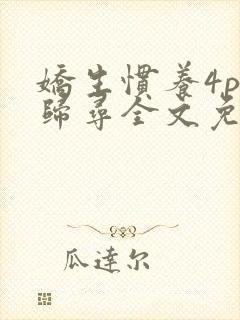 嬌生慣養4p
歸尋全文免
瓜達尔